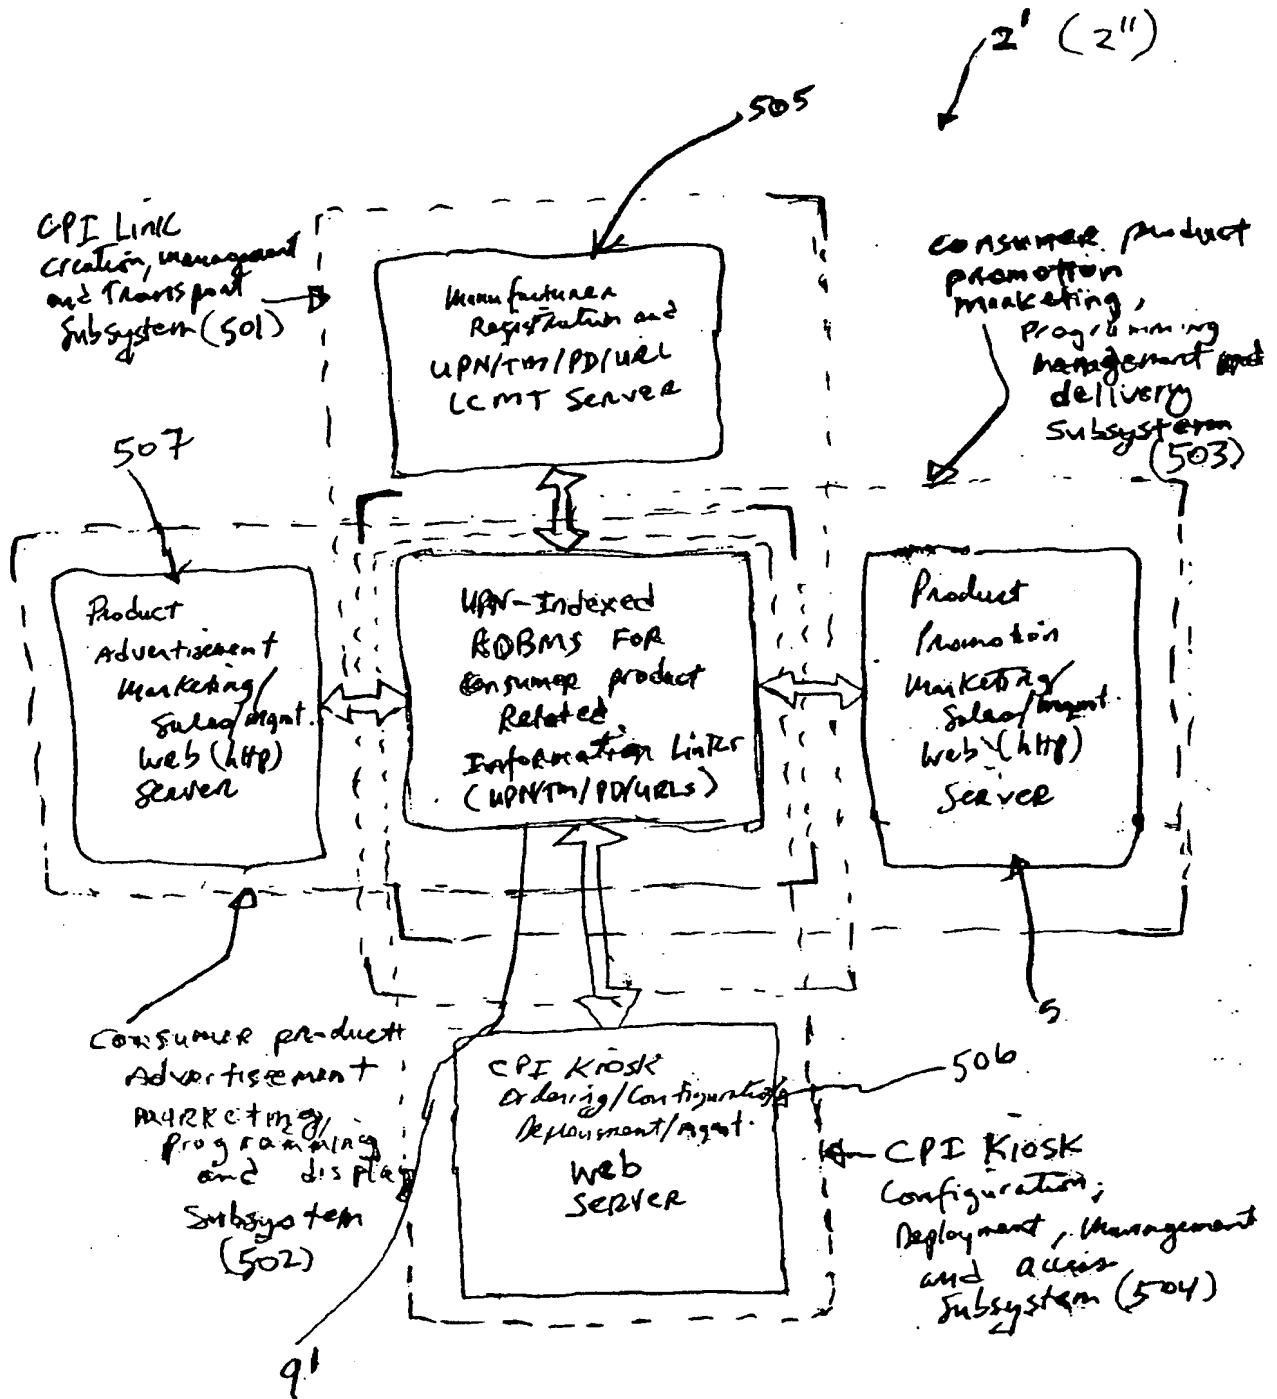 2' (2")
505
CPI Link
Creation, management
and Transport
Subsystem (501)
Manufacturer
Registration and
UPN/TM/PD/URL
LCMT Server
Consumer product
promotion
marketing,
programming
management and
delivery
Subsystem
(503)
507
Product
Advertisement
Marketing/
Sales/mgmt.
Web (http)
Server
UPN-Indexed
RDBMS FOR
Consumer product
Related
Information Links
(UPN/TM/PD/URLs)
Product
Promotion
Marketing/
Sales/mgmt.
Web (http)
Server
5
Consumer product
Advertisement
marketing,
programming
and display
Subsystem
(502)
CPI Kiosk
Ordering/Configuration
Deployment/Mgmt.
Web
Server
506
CPI Kiosk
Configuration,
Deployment, Management
and access
Subsystem (504)
9'